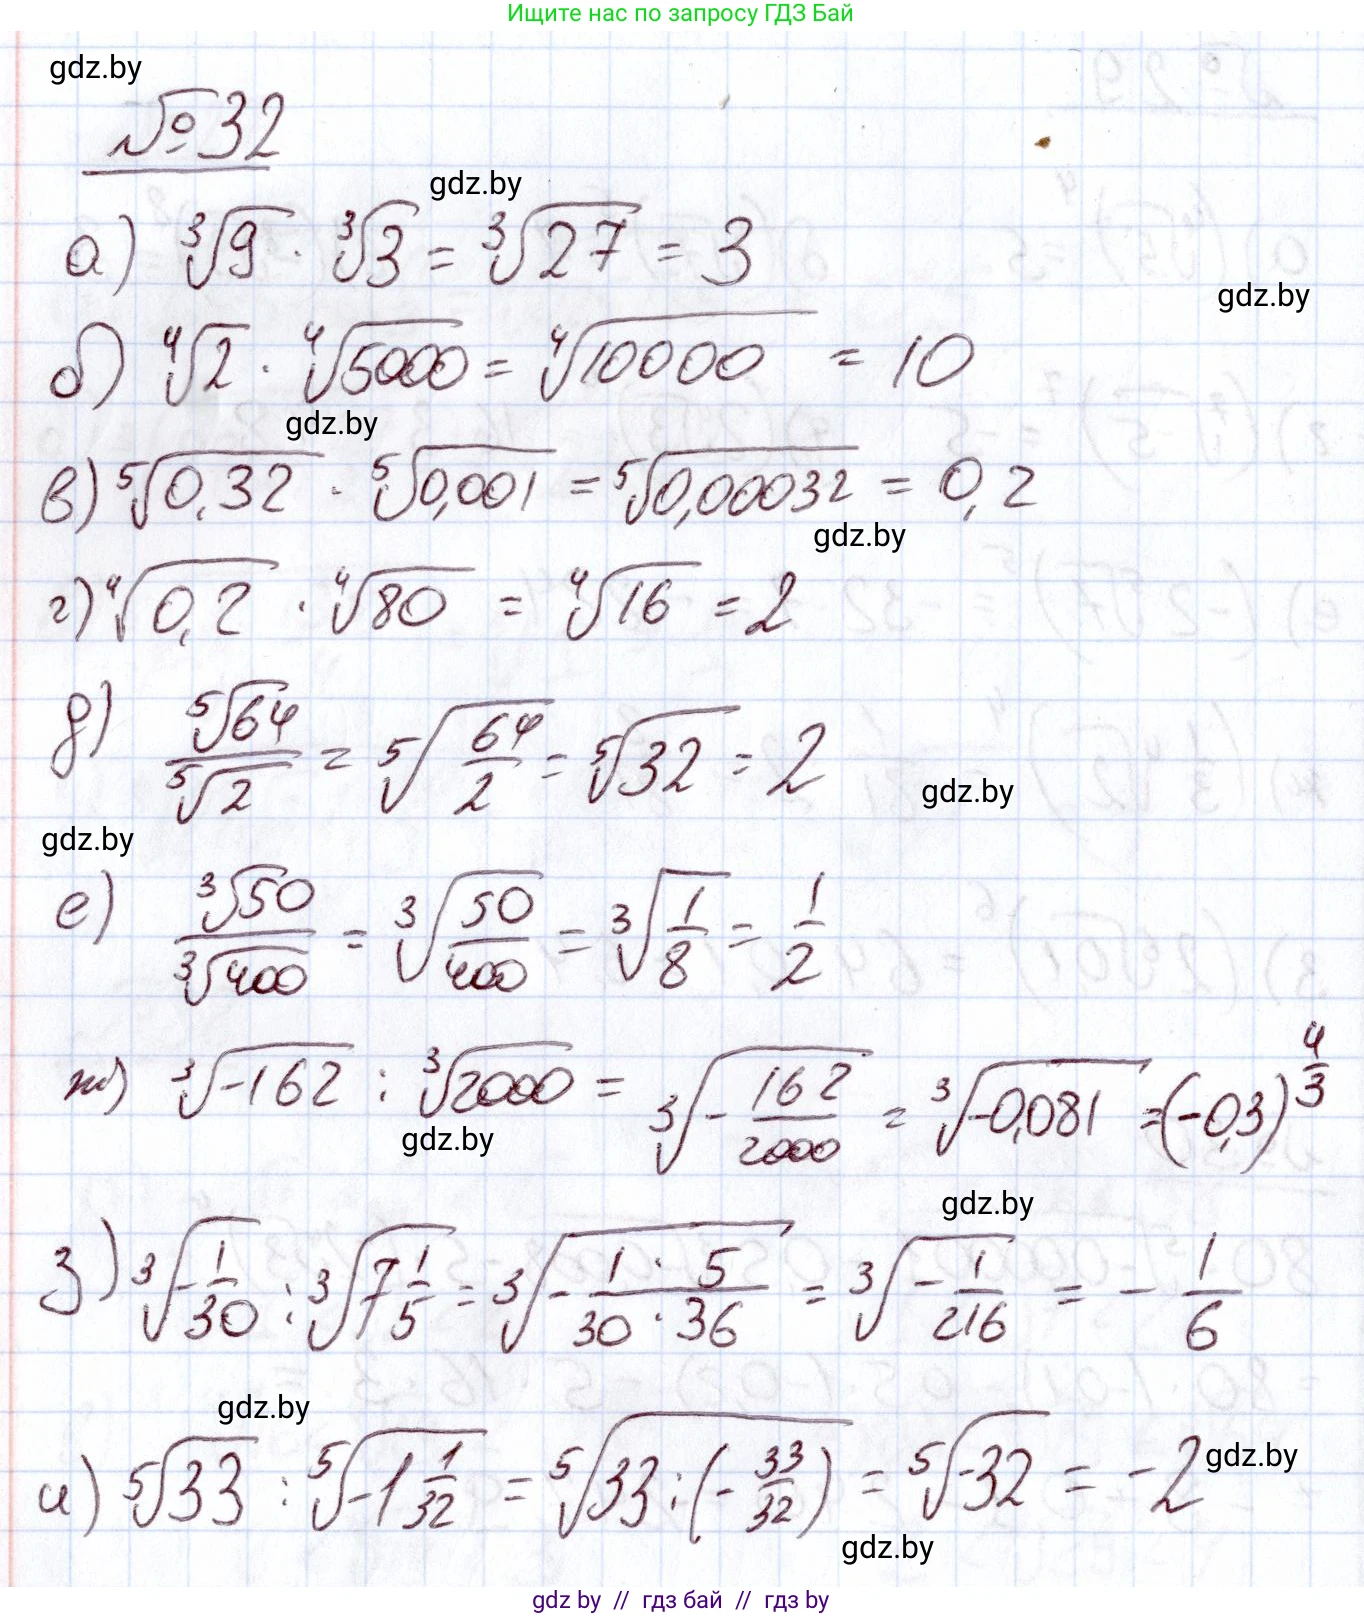 Ищите нас по запросу ГДЗ Бай
gdz.by
№32
gdz.by
а) ∛9 · ∛3 = ∛27 = 3
gdz.by
б) ∜2 · ∜5000 = ∜10000 = 10
gdz.by
в) ⁵√0,32 · ⁵√0,001 = ⁵√0,00032 = 0,2
gdz.by
г) ∜0,2 · ∜80 = ∜16 = 2
д) ⁵√64 / ⁵√2 = ⁵√(64/2) = ⁵√32 = 2
gdz.by
gdz.by
е) ∛50 / ∛400 = ∛(50/400) = ∛(1/8) = 1/2
ж) ∛-162 : ∛2000 = ∛(-162/2000) = ∛-0,081 = (-0,3)^(4/3)
gdz.by
gdz.by
з) ∛(-1/30) : ∛(7 1/5) = ∛(-(1 · 5)/(30 · 36)) = ∛(-1/216) = -1/6
gdz.by
и) ⁵√33 : ⁵√(-1 1/32) = ⁵√(33 : (-33/32)) = ⁵√-32 = -2
gdz.by
gdz.by
gdz by // гдз бай // гдз by